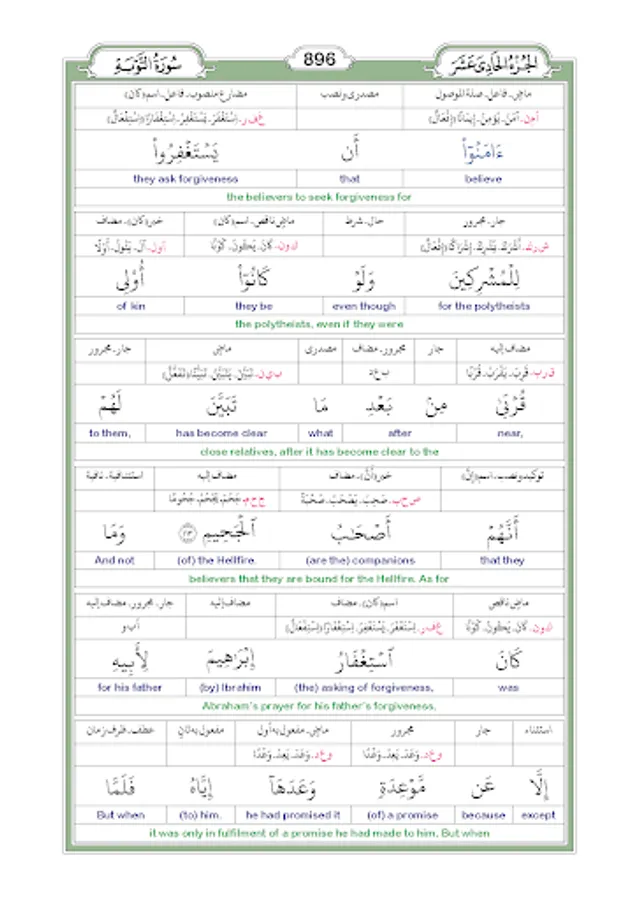 الجُزْءُ الحَادِی عَشَرَ 896 سُورَةُ التَّوْبَةِ
ماضٍ، فاعل، صلة الموصول مصدری ونصب مضارع منصوب، فاعل، اسم (كان)
ءَامَنُوٓا۟ أَن يَسْتَغْفِرُوا۟
believe that they ask forgiveness
the believers to seek forgiveness for
جار، مجرور حال، شرط ماضٍ ناقص، اسم (كان) خبر (كان)، مضاف
لِلْمُشْرِكِينَ وَلَوْ كَانُوٓا۟ أُو۟لِى
for the polytheists even though they be of kin
the polytheists, even if they were
مضاف إليه جار مجرور، مضاف مصدری ماضٍ جار، مجرور
قُرْبَىٰ مِنۢ بَعْدِ مَا تَبَيَّنَ لَهُمْ
near, after what has become clear to them,
close relatives, after it has become clear to the
توكيد ونصب، اسم (إنَّ) خبر (أنَّ)، مضاف مضاف إليه استئنافية، نافية
أَنَّهُمْ أَصْحَـٰبُ ٱلْجَحِيمِ ١١٣ وَمَا
that they (are the) companions (of) the Hellfire. And not
believers that they are bound for the Hellfire. As for
ماضٍ ناقص اسم (كان)، مضاف مضاف إليه جار، مجرور، مضاف إليه
كَانَ ٱسْتِغْفَارُ إِبْرَٰهِيمَ لِأَبِيهِ
was (the) asking of forgiveness, (by) Ibrahim for his father
Abraham's prayer for his father's forgiveness,
استثناء جار مجرور ماضٍ، مفعول به أول مفعول به ثانٍ عطف، ظرف زمان
إِلَّا عَن مَّوْعِدَةٍ وَعَدَهَآ إِيَّاهُ فَلَمَّا
except because (of) a promise he had promised it (to) him. But when
it was only in fulfilment of a promise he had made to him. But when